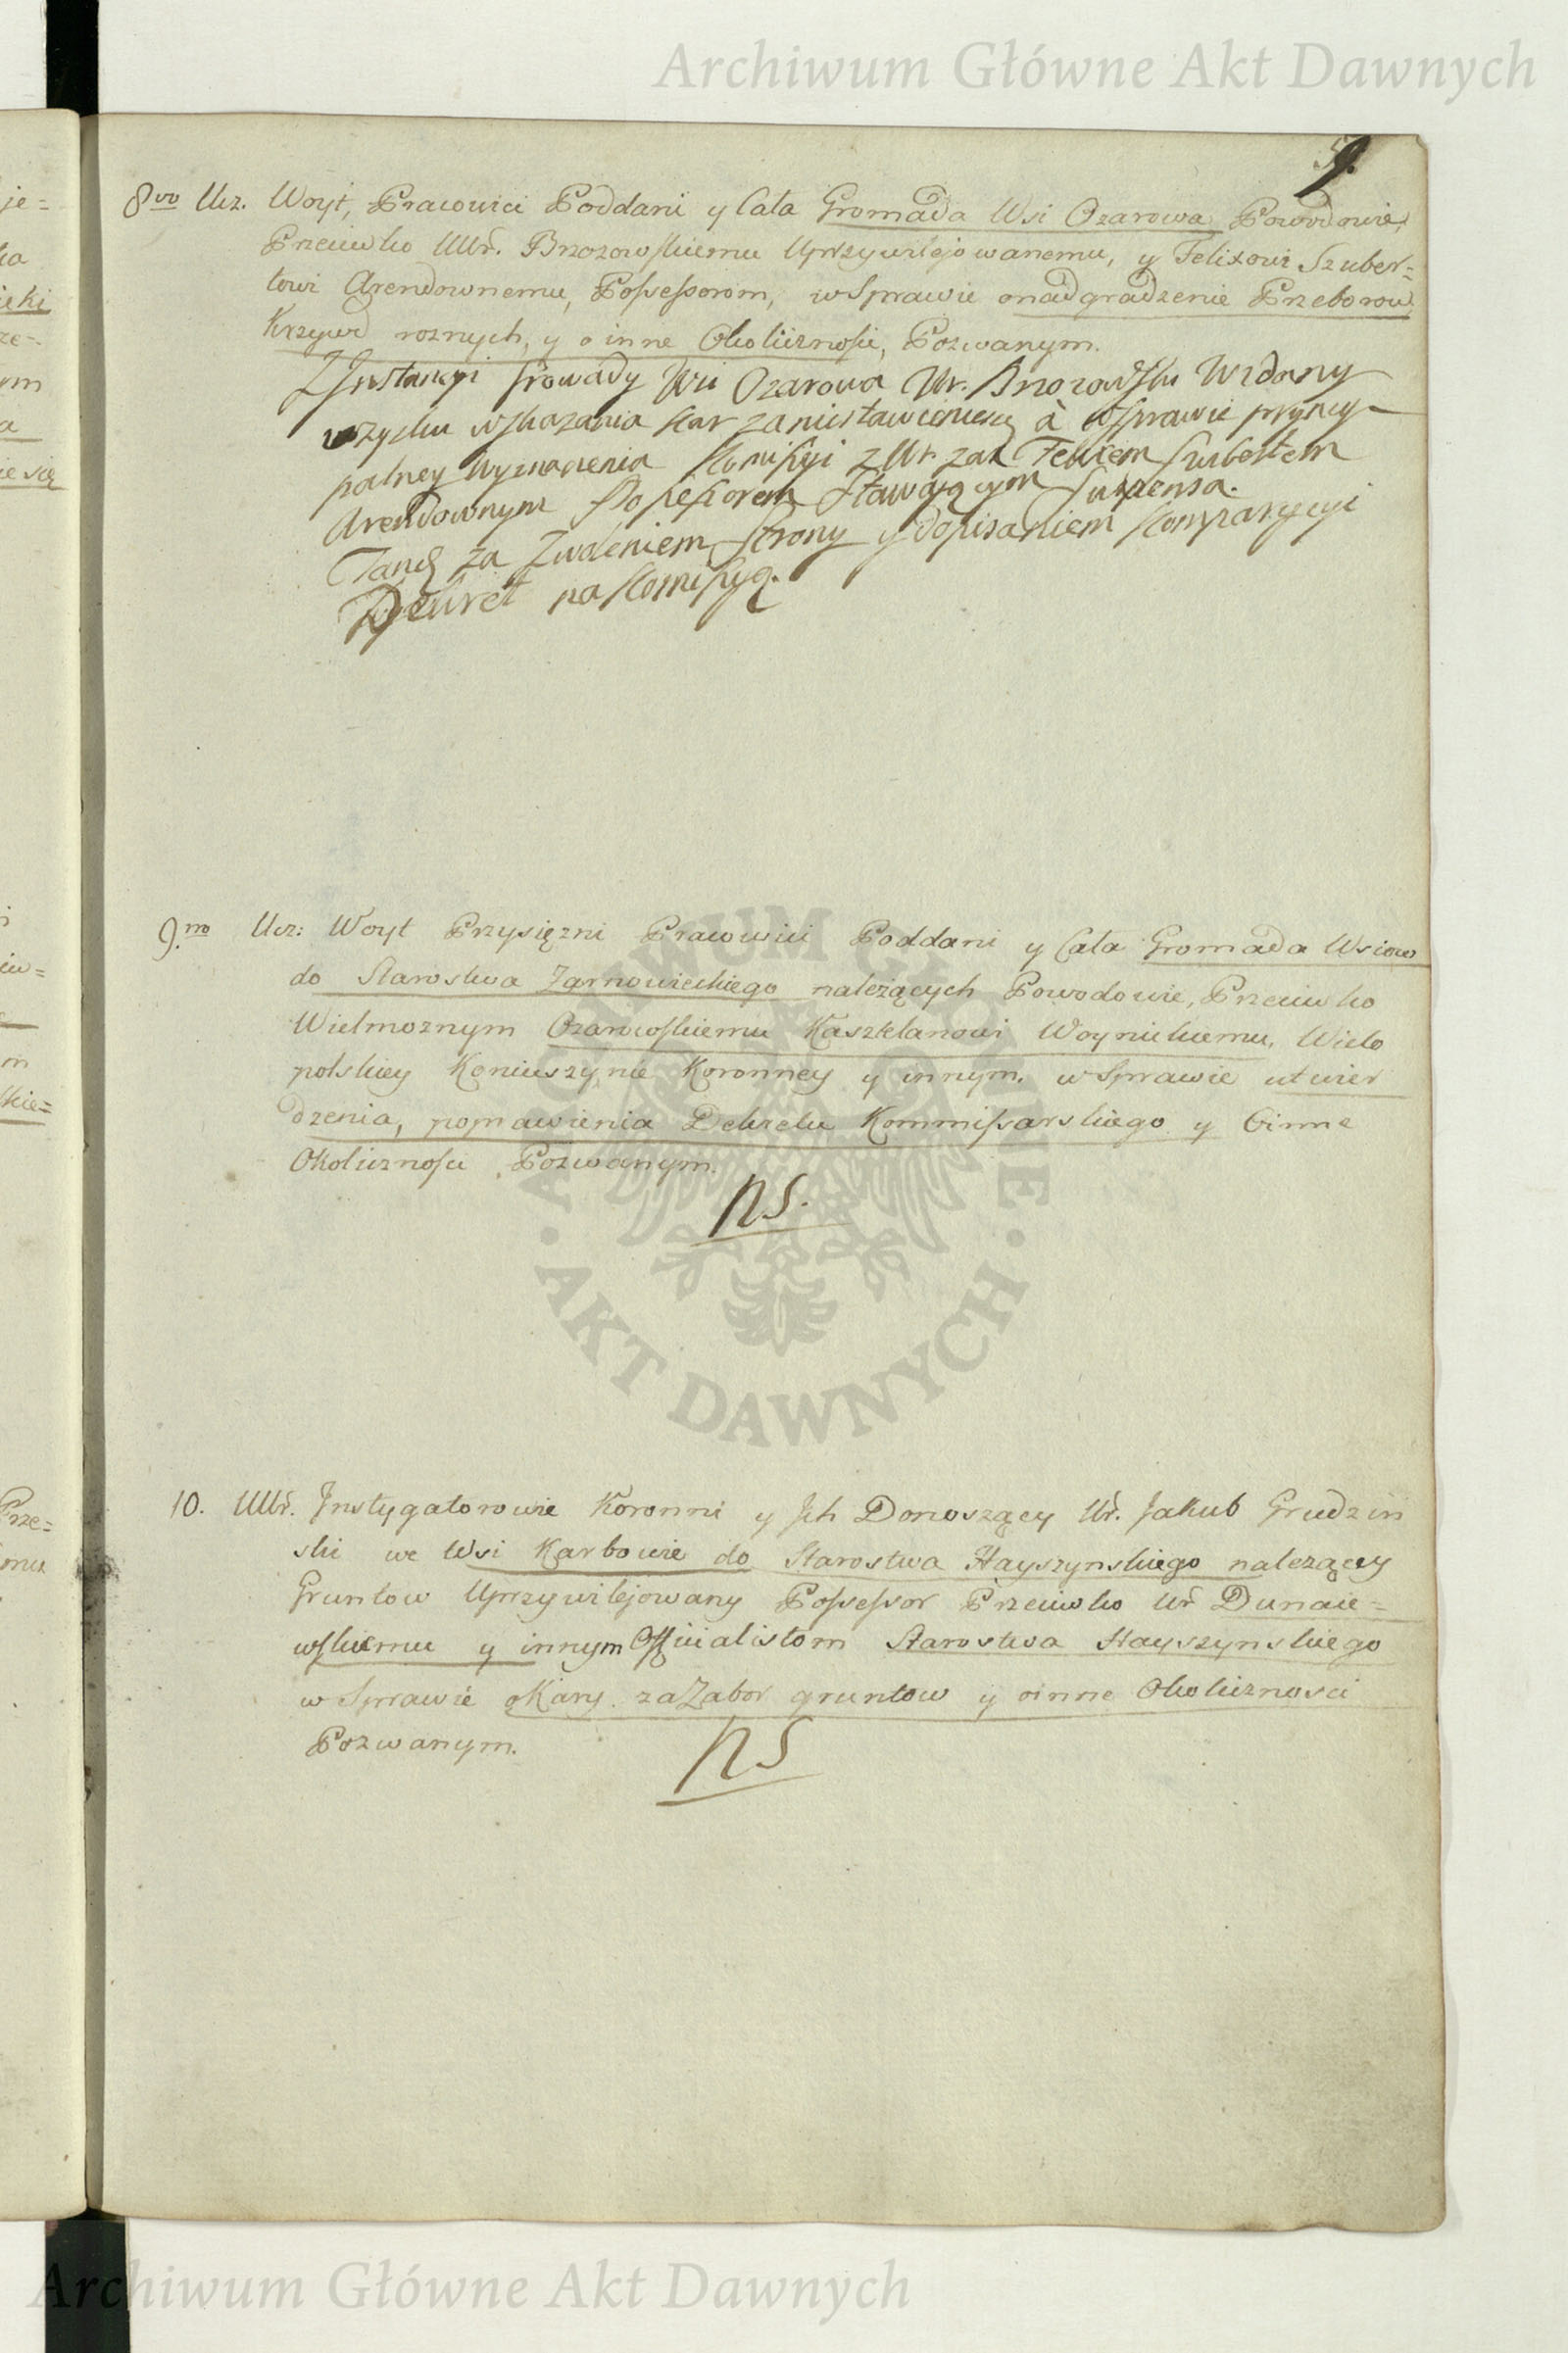 Archiwum Główne Akt Dawnych
9.
8vo Ucz. Woyt, Pracowici Poddani y Cała Gromada Wsi Ozarowa Powodowie,
Przeciwko UUr. Brzozowskiemu Uprzywilejowanemu, y Felixowi Szuber=
towi Arendownemu, Possessorom, w Sprawie o nadgrodzenie Przeborow
Krzywd roznych, y o inne Okolicznosci, Pozwanym.
Z Jnstancyi Gromady Wsi Ozarowa Ur. Brzozowski Wzdany
wzysku wskazania kar za niestawienie się à w Sprawie pryncy-
palney wyznaczenia Komissyi z Ur. zas Felixem Szubertem
Arendownym Possessorem Stawaiącym Suspensa.
Taneq za Zwoleniem Strony y dopisaniem Komparycyi
Dekret na Komissyą.
9.no Ucz: Woyt Przysięzni Pracowici Poddani y Cała Gromada Wsiow
do Starostwa Zarnowieckiego należących Powodowie, Przeciwko
Wielmoznym Ozarowskiemu Kasztelanowi Woynickiemu, Wielo
polskiey Koniuszynie Koronney y innym. w Sprawie utwier
dzenia, poprawienia Dekretu Kommissarskiego y O inne
Okolicznosci Pozwanym.
NS.
10. UUr. Jnstygatorowie Koronni y Jch Donoszący Ur. Jakub Grudzin
ski we Wsi Karbowie do Starostwa Hayszynskiego nalezącey
Gruntow Uprzywilejowany Possessor Przeciwko Ur Dunaie=
wskiemu y innym Officialistom Starostwa Hayszynskiego
w Sprawie o Kary za Zabor gruntow y o inne Okolicznosci
Pozwanym.
NS
ARCHIWUM GŁÓWNE · AKT DAWNYCH ·
Archiwum Główne Akt Dawnych